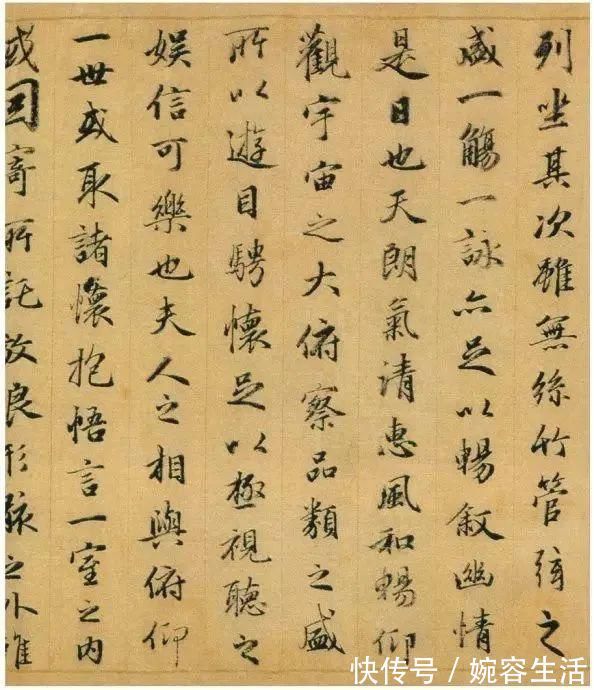 列坐其次雖無絲竹管弦之
盛一觴一詠亦足以暢敘幽情
是日也天朗氣清惠風和暢仰
觀宇宙之大俯察品類之盛
所以遊目騁懷足以極視聽之
娛信可樂也夫人之相與俯仰
一世或取諸懷抱悟言一室之內
或因寄所託放浪形骸之外雖
快传号 / 婉容生活